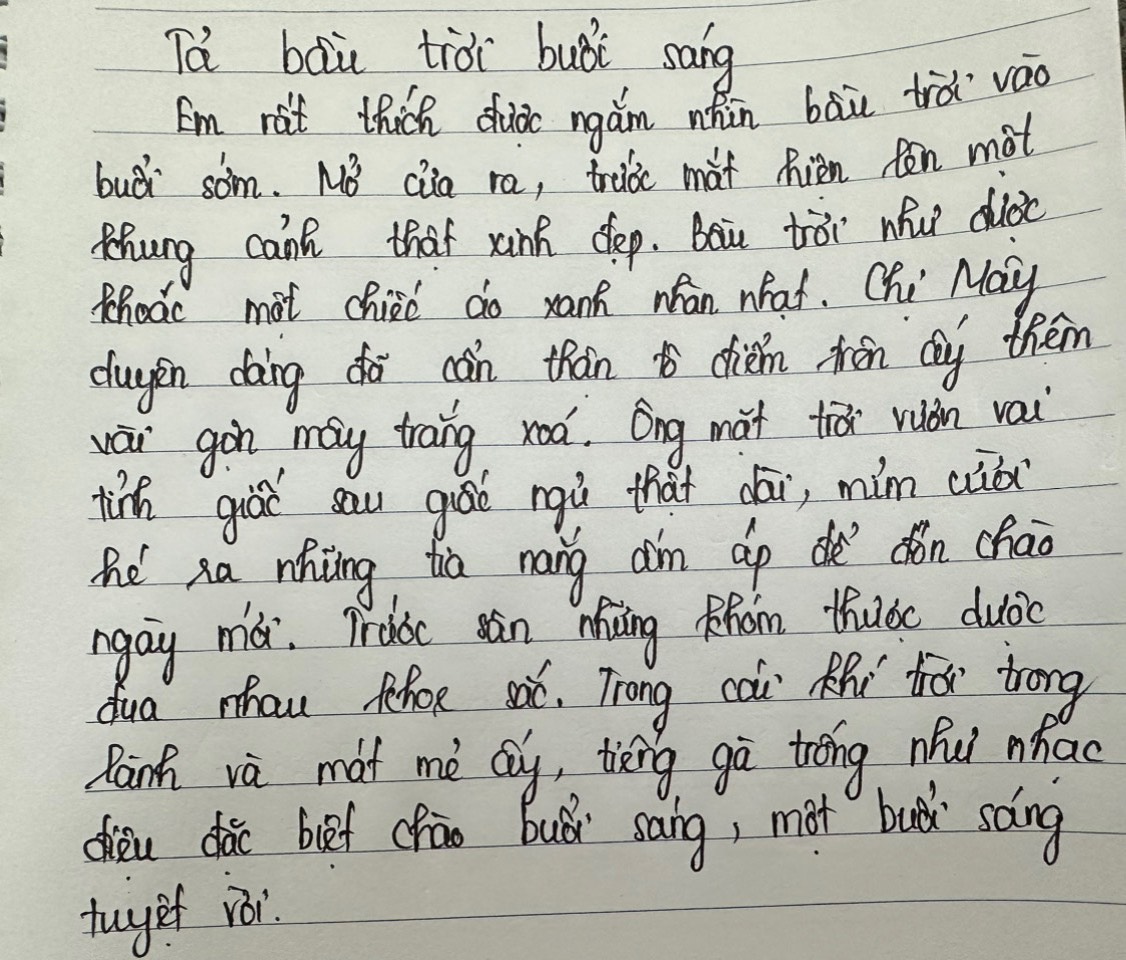 Tả bầu trời buổi sáng
Em rất thích được ngắm nhìn bầu trời vào
buổi sớm. Mở cửa ra, trước mắt hiện lên một
khung cảnh thật xinh đẹp. Bầu trời như được
khoác một chiếc áo xanh nhàn nhạt. Chị Mây
duyên dáng đã cẩn thận tô điểm trên ấy thêm
vài gợn mây trắng xoá. Ông mặt trời vươn vai
tỉnh giấc sau giấc ngủ thật dài, mỉm cười
hé ra những tia nắng ấm áp để đón chào
ngày mới. Trước sân những khóm thược dược
đua nhau khoe sắc. Trong cái khí trời trong
lành và mát mẻ ấy, tiếng gà trống như nhạc
điệu đặc biệt chào buổi sáng, một buổi sáng
tuyệt vời.